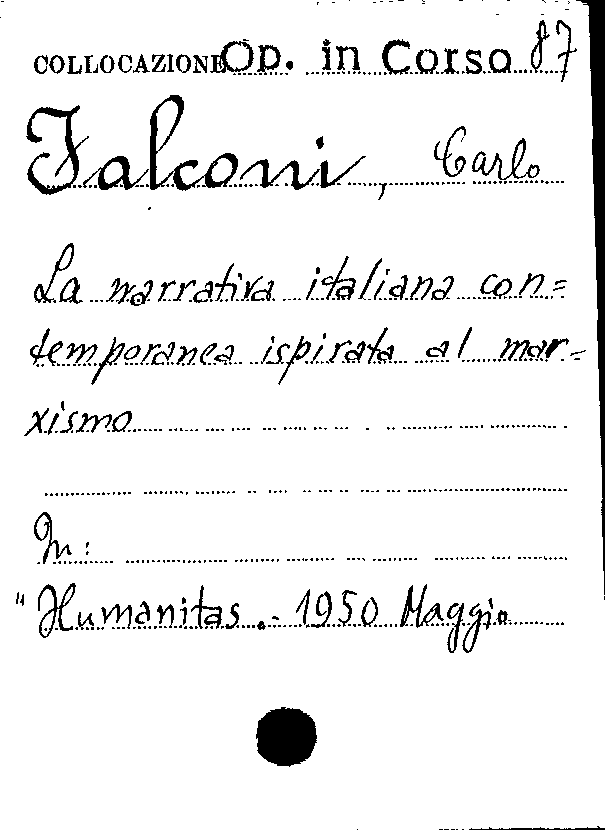 COLLOCAZIONE Op. in Corso 87
Falconi, Carlo
La narrativa italiana con=
temporanea ispirata al mar=
xismo
In:
"Humanitas.- 1950 Maggio